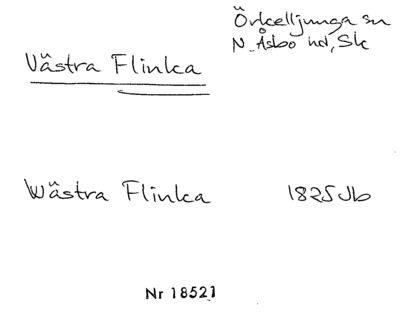 Örkelljunga sn
N. Åsbo hd, Sk
Västra Flinka
Wästra Flinka 1825 Jb
Nr 18521